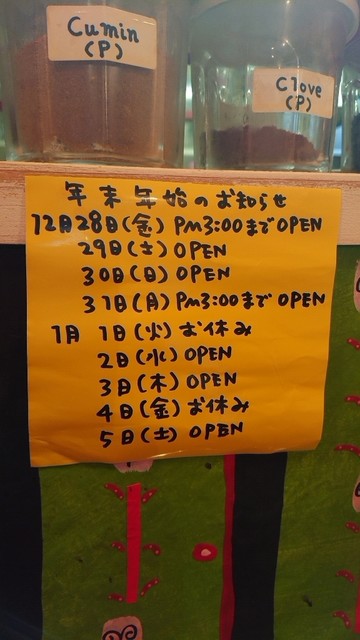 Cumin
(P)
Clove
(P)
年末年始のお知らせ
12月28日(金) Pm3:00まで OPEN
29日(土) OPEN
30日(日) OPEN
31日(月) Pm3:00まで OPEN
1月 1日(火) お休み
2日(水) OPEN
3日(木) OPEN
4日(金) お休み
5日(土) OPEN